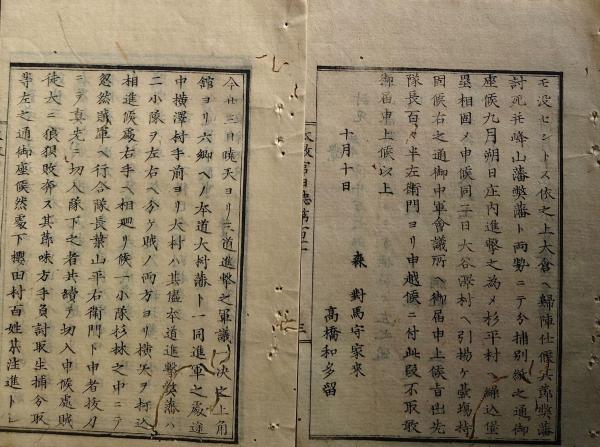 モ没セントス依之上大倉ヘ歸陣仕候共弊藩
討死并峰山藩弊藩ト両勢ニテ分捕別紙之通御
座候九月朔日庄内進撃之為メ杉平村ヘ繰込堡
塁相固メ申候同三日大谷澤村ヘ引揚ケ臺場持
固候右之通御中軍會議所ヘ御届申上候旨出先
隊長百々半左衛門ヨリ申越候ニ付此段不取敢
御届申上候以上
十月十日
森對馬守家来
高橋和多留
太政官日誌第百二
三
今廿三日暁天ヨリ三道進撃之軍議ニ決定上角
舘ヨリ六郷ヘノ本道大村藩ト一同進軍之處途
中横澤村手前ヨリ大村ハ其儘本道進撃弊藩ハ
二小隊ヲ左右ヘ分ケ賊ノ両方ヨリ横矢ヲ打込
相進候處右手ヘ相廻リ候一小隊杉林之中ニテ
忽然賊軍ヘ行合隊長葉山平右衛門ト申者抜刀
ニテ真先ニ切入隊下之者共續テ切入申候處賊
徒大ニ狼狽敗奔ス其節味方手負討取生捕分取
等左之通御座候然處下櫻田村百姓某注進トシ